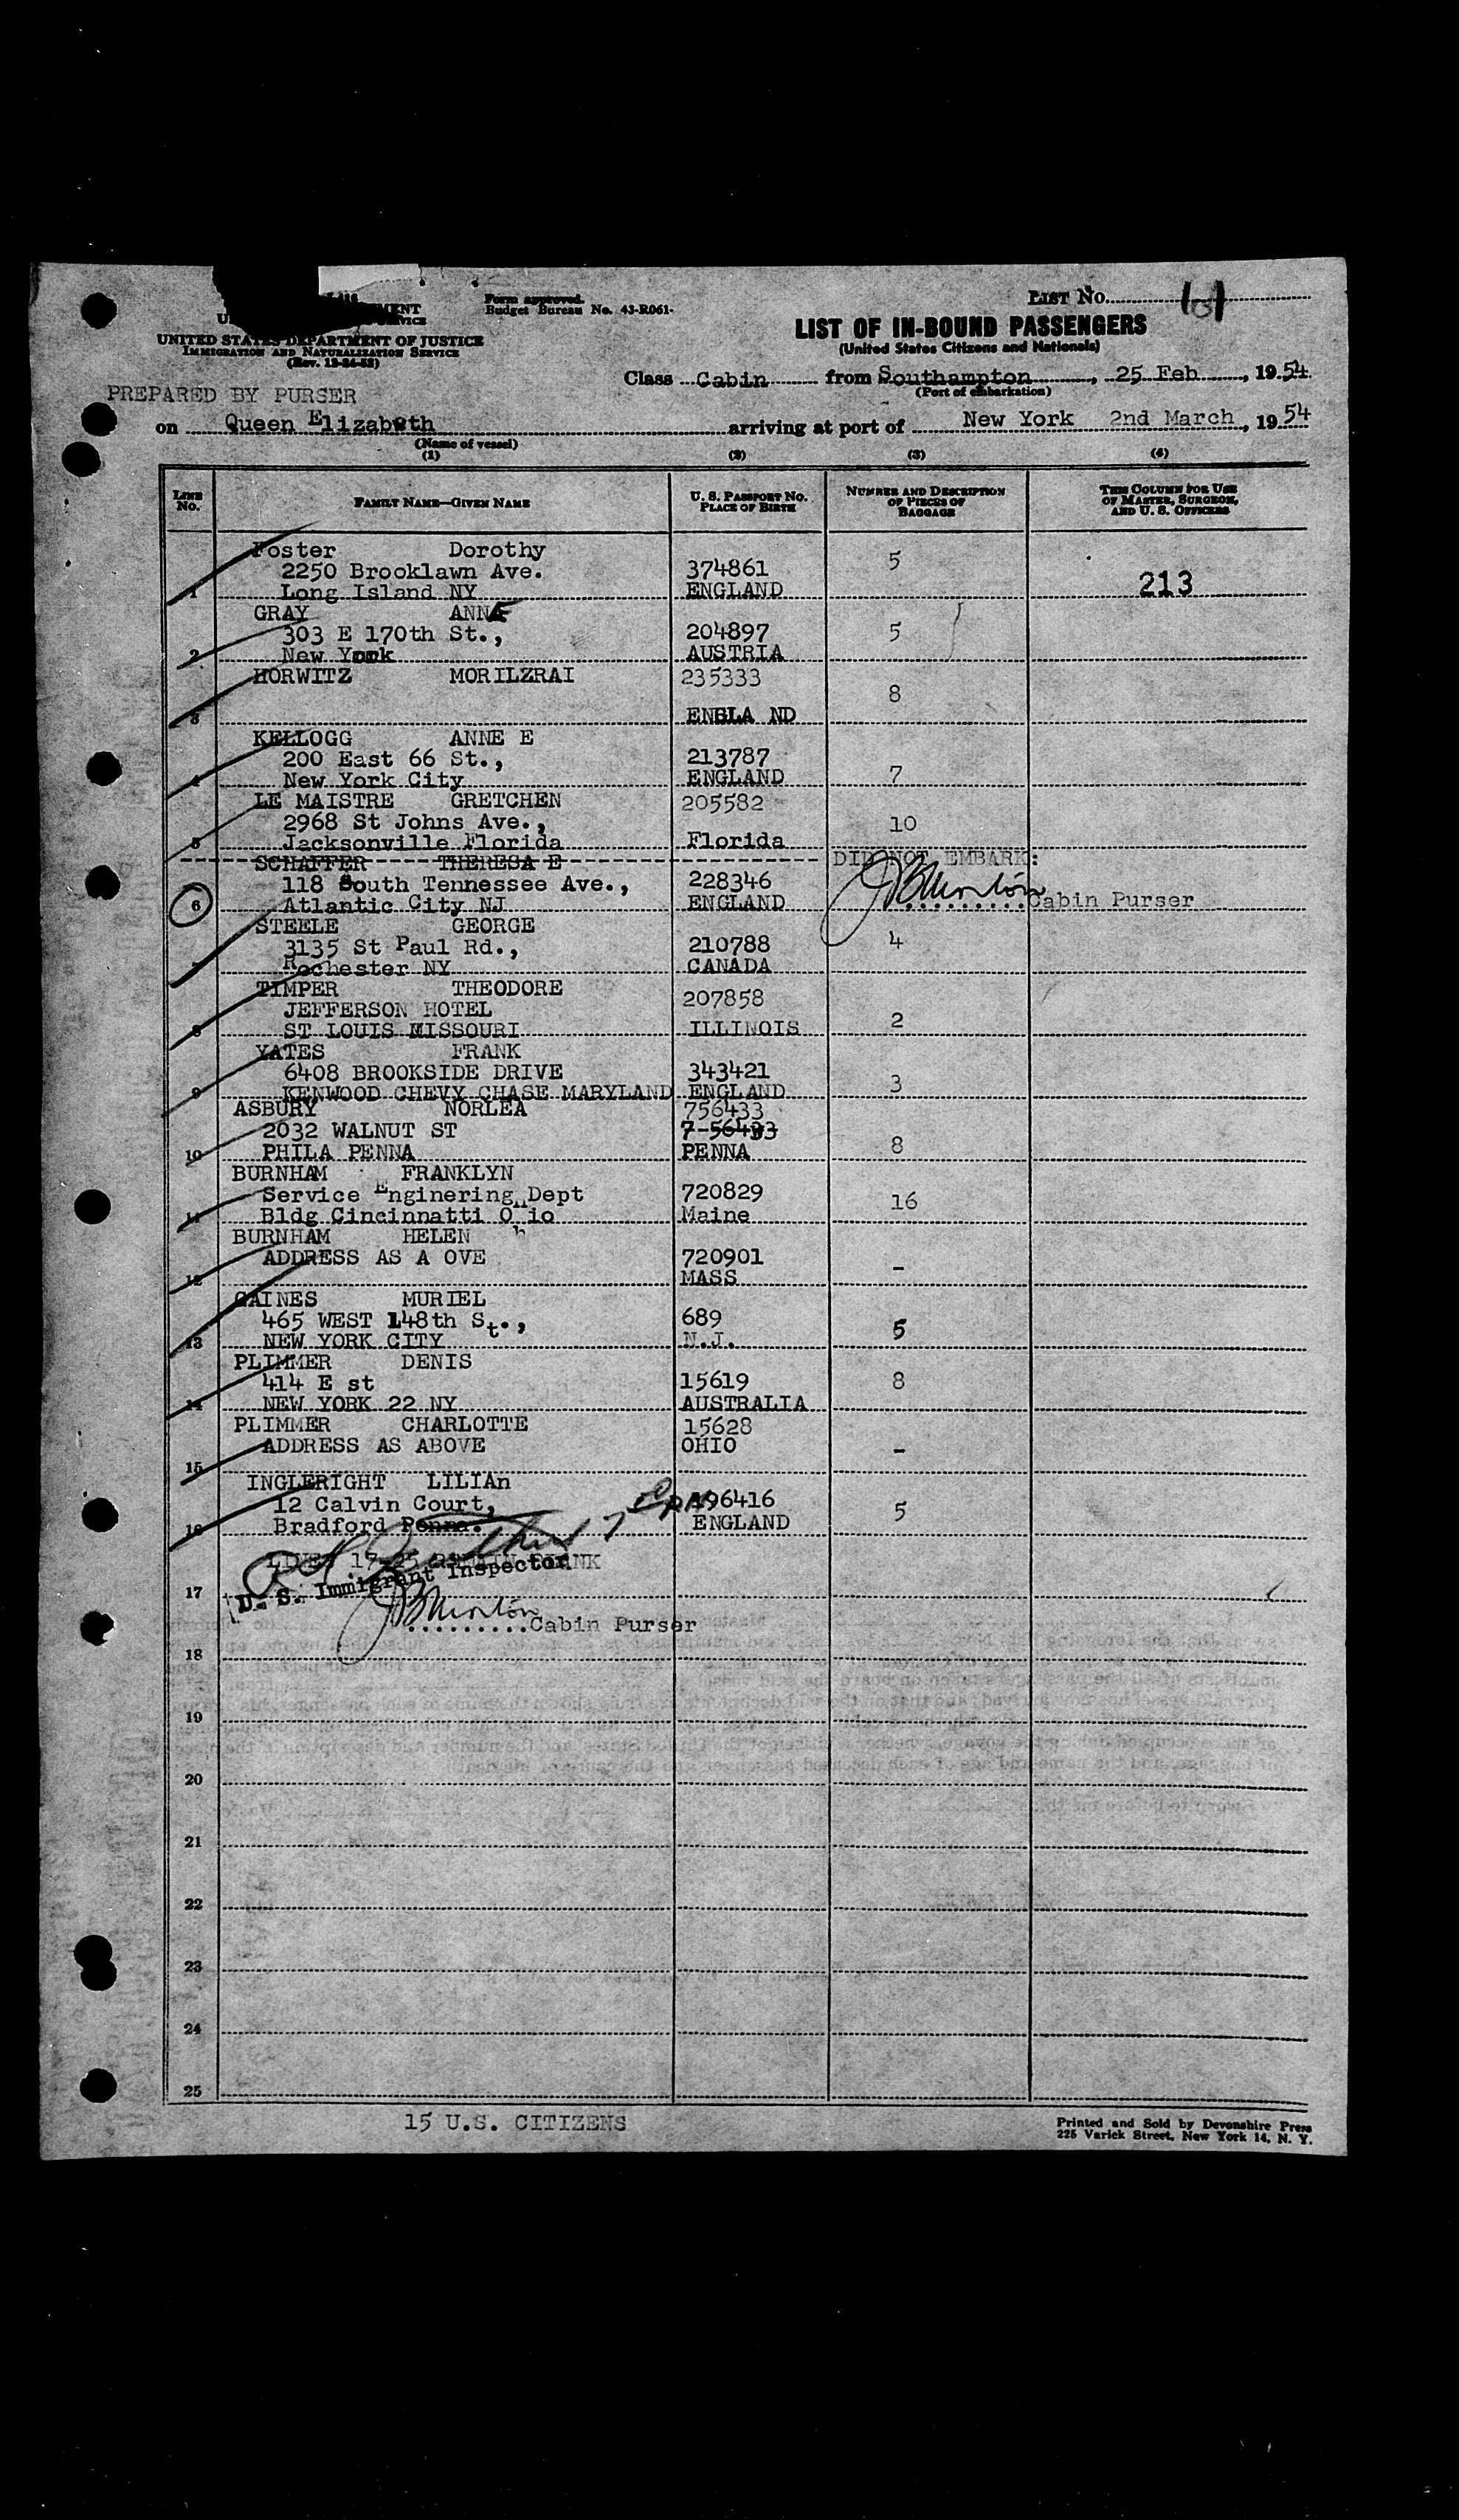 Form approved.
Budget Bureau No. 43-R061-
LIST No.
UNITED STATES DEPARTMENT OF JUSTICE
IMMIGRATION AND NATURALIZATION SERVICE
LIST OF IN-BOUND PASSENGERS
(United States Citizens and Nationals)
Class Cabin from Southampton, 25 Feb, 1954
(Port of embarkation)
PREPARED BY PURSER
on Queen Elizabeth arriving at port of New York 2nd March, 1954
(Name of vessel)
(1) (2) (3) (4)
LINE No. FAMILY NAME—GIVEN NAME U. S. PASSPORT No. PLACE OF BIRTH NUMBER AND DESCRIPTION OF PIECES OF BAGGAGE THIS COLUMN FOR USE OF MASTER, SURGEON, AND U. S. OFFICERS
Foster Dorothy 5
2250 Brooklawn Ave. 374861
1 Long Island NY ENGLAND 213
GRAY ANNE
303 E 170th St., 204897 5
2 New York AUSTRIA
HORWITZ MORILZRAI 235333
8
3 ENGLA ND
KELLOGG ANNE E
200 East 66 St., 213787
4 New York City ENGLAND 7
LE MAISTRE GRETCHEN 205582
2968 St Johns Ave., 10
5 Jacksonville Florida Florida
SCHAFFER THERESA E DID NOT EMBARK:
118 South Tennessee Ave., 228346
6 Atlantic City NJ ENGLAND .........Cabin Purser
STEELE GEORGE
3135 St Paul Rd., 210788 4
7 Rochester NY CANADA
TIMPER THEODORE 207858
JEFFERSON HOTEL
8 ST LOUIS MISSOURI ILLINOIS 2
YATES FRANK
6408 BROOKSIDE DRIVE 343421 3
9 KENWOOD CHEVY CHASE MARYLAND ENGLAND
ASBURY NORLEA 756433
2032 WALNUT ST
10 PHILA PENNA PENNA 8
BURNHAM FRANKLYN
Service Enginering Dept 720829 16
11 Bldg Cincinnatti Ohio Maine
BURNHAM HELEN
ADDRESS AS A OVE 720901 -
12 MASS
GAINES MURIEL
465 WEST 148th St., 689 5
13 NEW YORK CITY N.J.
PLIMMER DENIS
414 E st 15619 8
14 NEW YORK 22 NY AUSTRALIA
PLIMMER CHARLOTTE 15628
ADDRESS AS ABOVE OHIO -
15
INGLERIGHT LILIAn
12 Calvin Court, 196416 5
16 Bradford Penna. ENGLAND
U. S. Immigrant Inspector
17
.........Cabin Purser
18
19
20
21
22
23
24
25
15 U.S. CITIZENS
Printed and Sold by Devonshire Press
225 Varick Street, New York 14, N. Y.